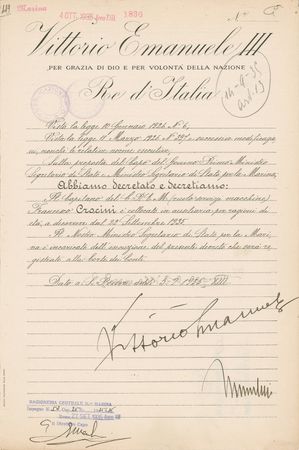 Marina
4 OTT. 1935 Anno XIII
1836
N.°
Vittorio Emanuele III
PER GRAZIA DI DIO E PER VOLONTÀ DELLA NAZIONE
Re d'Italia
Vista la legge 10 Gennaio 1926 N. 6,
Vista la legge 11 Marzo 1926 N. 397 e successive modificazio
ni, nonchè le relative norme esecutive,
Sulla proposta del Capo del Governo, Primo Ministro
Segretario di Stato e Ministro Segretario di Stato per la Marina,
Abbiamo decretato e decretiamo:
Il Capitano del C.R.E.M. (ruolo servizi macchina)
Francesco Orsini è collocato in ausiliaria per ragioni di
età, a decorrere dal 22 Settembre 1935.
Il Nostro Ministro Segretario di Stato per la Mari
na è incaricato dell'esecuzione del presente decreto che sarà re
gistrato alla Corte dei Conti.
Dato a S. Rossore addì 5-9-1935 XIII
Vittorio Emanuele
Mussolini
RAGIONERIA CENTRALE R.ª MARINA
Impegno N.
Roma 27 SET. 1935 Anno XIII
Il Direttore Capo